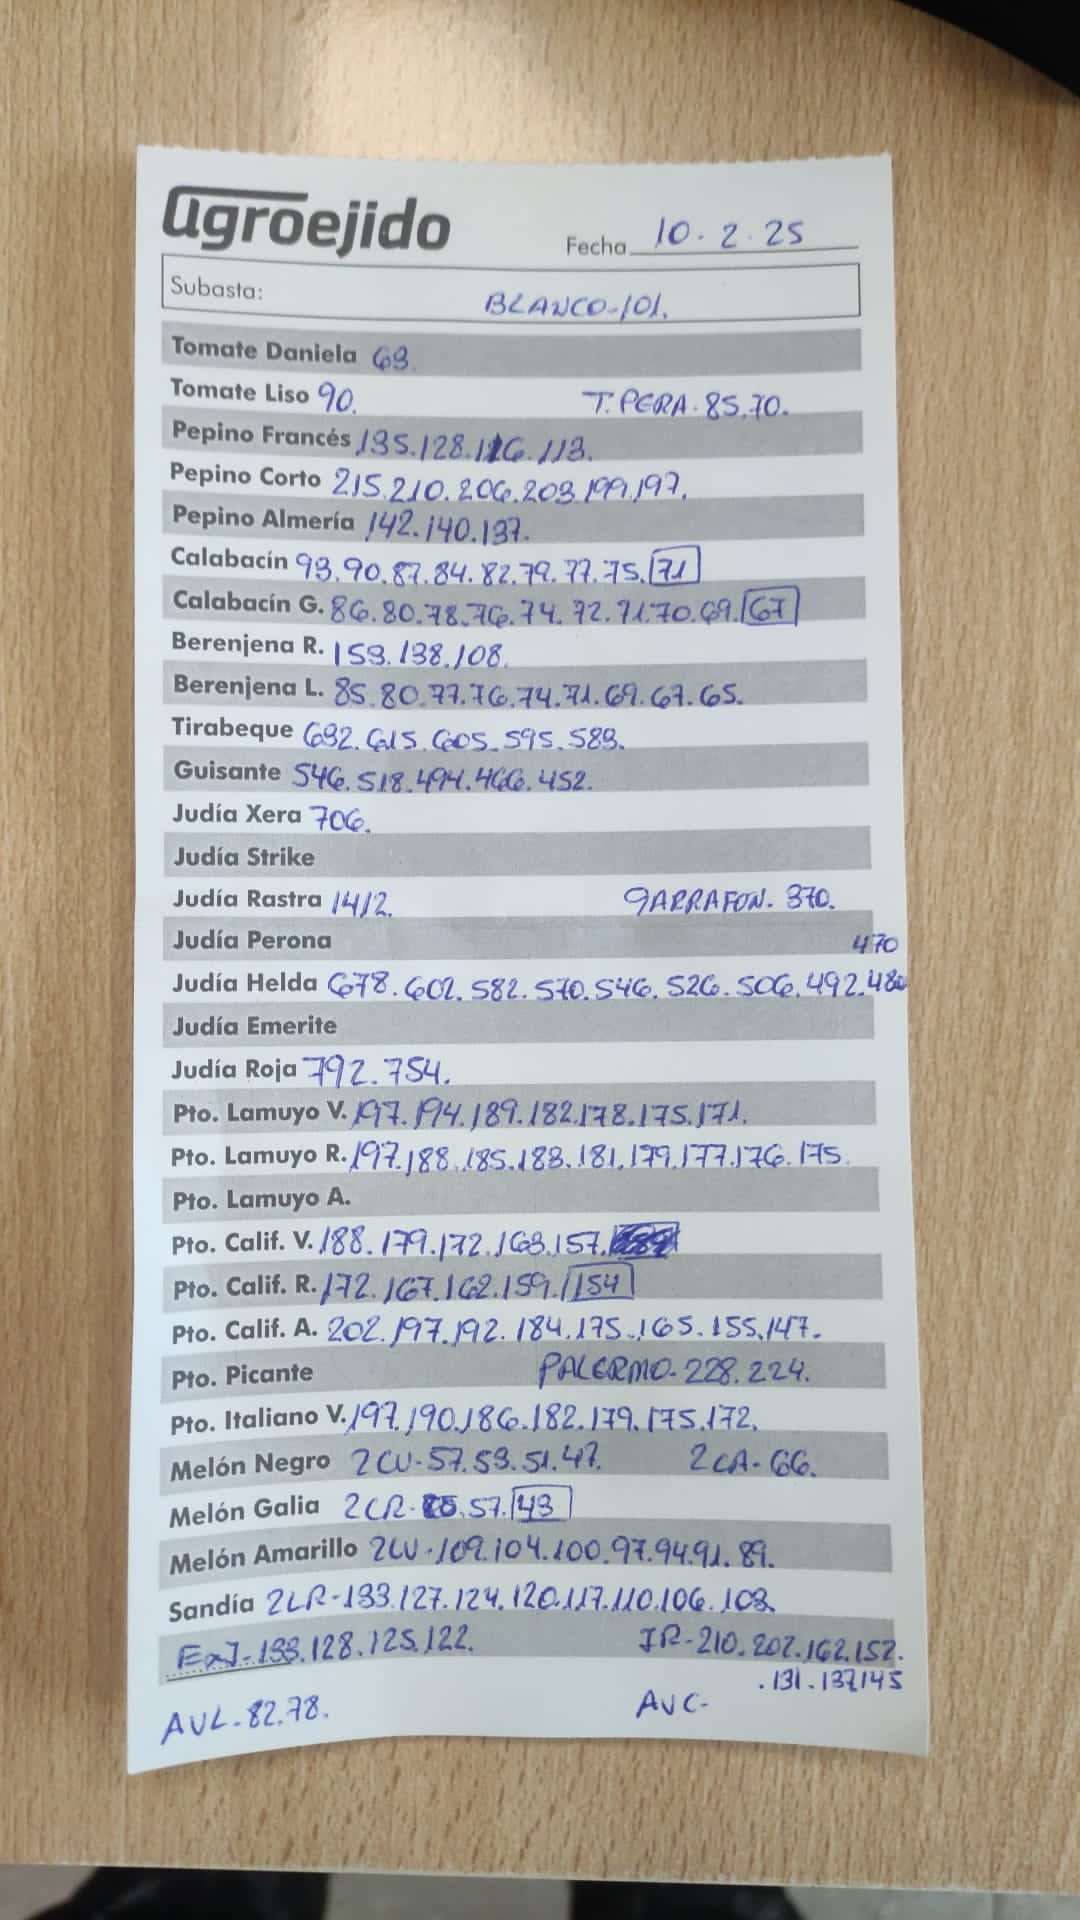 agroejido
Fecha 10.2.25
Subasta: BLANCO-101.
Tomate Daniela 63.
Tomate Liso 90. T.PERA.85.70.
Pepino Francés 135.128.116.113.
Pepino Corto 215.210.206.203.199.197.
Pepino Almería 142.140.137.
Calabacín 93.90.87.84.82.79.77.75.71
Calabacín G. 86.80.78.76.74.72.71.70.69.67
Berenjena R. 153.138.108.
Berenjena L. 85.80.77.76.74.71.69.67.65.
Tirabeque 632.615.605.595.583.
Guisante 546.518.494.466.452.
Judía Xera 706.
Judía Strike
Judía Rastra 1412. GARRAFON. 370.
Judía Perona 470
Judía Helda 678.602.582.570.546.526.506.492.480
Judía Emerite
Judía Roja 792.754.
Pto. Lamuyo V. 197.194.189.182.178.175.171.
Pto. Lamuyo R. 197.188.185.183.181.179.177.176.175.
Pto. Lamuyo A.
Pto. Calif. V. 188.179.172.163.157.
Pto. Calif. R. 172.167.162.159.154
Pto. Calif. A. 202.197.192.184.175.165.155.147.
Pto. Picante PALERMO-228.224.
Pto. Italiano V. 197.190.186.182.179.175.172.
Melón Negro 2CU-57.53.51.47. 2CA-66.
Melón Galia 2CR- 57.43
Melón Amarillo 2LV-109.104.100.97.94.91.89.
Sandía 2LR-133.127.124.120.117.110.106.103.
133.128.125.122. JR-210.202.162.152.
.131.137.145
AVL-82.78. AVC-